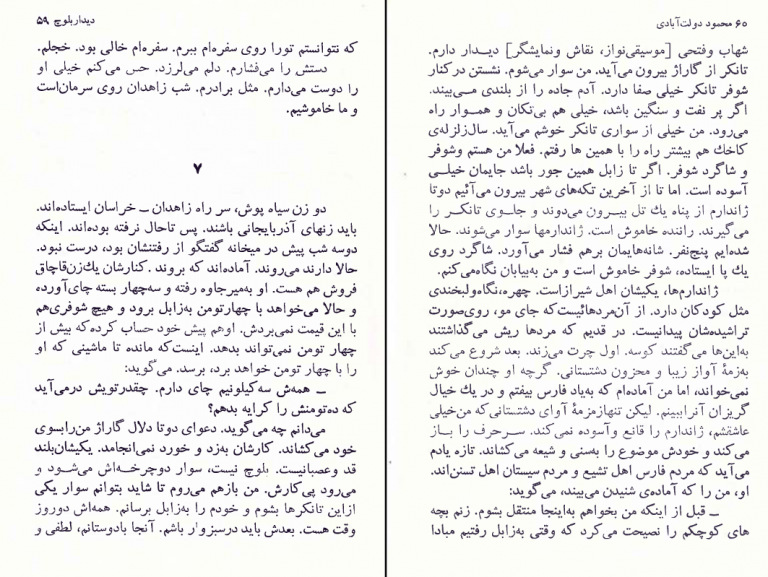 دیدار بلوچ ۵۹
که نتوانستم تورا روی سفره‌ام ببرم. سفره‌ام خالی بود. خجلم.
دستش را می‌فشارم. دلم می‌لرزد. حس می‌کنم خیلی او
را دوست می‌دارم. مثل برادرم. شب زاهدان روی سرمان‌است
و ما خاموشیم.
۷
دو زن سیاه پوش، سر راه زاهدان ــ خراسان ایستاده‌اند.
باید زنهای آذربایجانی باشند. پس تاحال نرفته بوده‌اند. اینکه
دوسه شب پیش در میخانه گفتگو از رفتنشان بود، درست نبود.
حالا دارند می‌روند. آماده‌اند که بروند. کنارشان یك‌زن‌قاچاق
فروش هم هست. او به‌میرجاوه رفته و سه‌چهار بسته چای‌آورده
و حالا می‌خواهد با چهارتومن به‌زابل برود و هیچ شوفری‌هم
با این قیمت نمی‌بردش. اوهم پیش خود حساب کرده‌که بیش از
چهار تومن نمی‌تواند بدهد. اینست‌که مانده تا ماشینی که او
را با چهار تومن خواهد برد، برسد. می‌گوید:
ــ همه‌ش سه‌کیلونیم چای دارم. چقدرتویش درمی‌آید
که ده‌تومنش را کرایه بدهم؟
می‌دانم چه می‌گوید. دعوای دوتا دلال گاراژ من‌رابسوی
خود می‌کشاند. کارشان به‌زد و خورد نمی‌انجامد. یکیشان‌بلند
قد وعصبانیست. بلوچ نیست، سوار دوچرخه‌اش می‌شود و
می‌رود پی‌کارش. من بازهم می‌روم تا شاید بتوانم سوار یکی
ازاین تانکرها بشوم و خودم را به‌زابل برسانم. همه‌اش دوروز
وقت هست. بعدش باید درسبزوار باشم. آنجا بادوستانم، لطفی و
۶۰ محمود دولت‌آبادی
شهاب وفتحی [موسیقی‌نواز، نقاش ونمایشگر] دیدار دارم.
تانکر از گاراژ بیرون می‌آید. من سوار می‌شوم. نشستن درکنار
شوفر تانکر خیلی صفا دارد. آدم جاده را از بلندی می‌بیند.
اگر پر نفت و سنگین باشد، خیلی هم بی‌تکان و همــوار راه
می‌رود. من خیلی از سواری تانکر خوشم می‌آید. سال‌زلزله‌ی
کاخك هم بیشتر راه را با همین ها رفتم. فعلا من هستم وشوفر
و شاگرد شوفر. اگر تا زابل همین جور باشد جایمان خیلی
آسوده است. اما تا از آخرین تکه‌های شهر بیرون می‌آئیم دوتا
ژاندارم از پناه یك تل بیــرون می‌دوند و جلــوی تانکــر را
می‌گیرند. راننده خاموش است. ژاندارمها سوار می‌شوند. حالا
شده‌ایم پنج‌نفر. شانه‌هایمان برهم فشار می‌آورد. شاگرد روی
یك پا ایستاده، شوفر خاموش است و من به‌بیابان نگاه‌می‌کنم.
ژاندارم‌ها، یکیشان اهل شیرازاست. چهره،نگاه‌ولبخندی
مثل کودکان دارد. از آن‌مردهائیست‌که جای مو، روی‌صورت
تراشیده‌شان پیدانیست. در قدیم که مردها ریش می‌گذاشتند
به‌این‌ها می‌گفتند کوسه. اول چرت می‌زند. بعد شروع می‌کند
به‌زمهٔ آواز زیبا و محزون دشتستانی. گرچه او چندان خوش
نمی‌خواند، اما من آماده‌ام که به‌یاد فارس بیفتم و در یك خیال
گریزان آنراببینم. لیکن تنهازمزمهٔ آوای دشتستانی‌که من‌خیلی
عاشقشم، ژاندارم را قانع وآسوده نمی‌کند. سرحرف را بــاز
می‌کند و خودش موضوع را به‌سنی و شیعه می‌کشاند. تازه یادم
می‌آید که مردم فارس اهل تشیع و مردم سیستان اهل تسنن‌اند.
او، من را که آماده‌ی شنیدن می‌بیند، می‌گوید:
ــ قبل از اینکه من بخواهم به‌اینجا منتقل بشوم. زنم بچه
های کوچکم را نصیحت می‌کرد که وقتی به‌زابل رفتیم مبادا